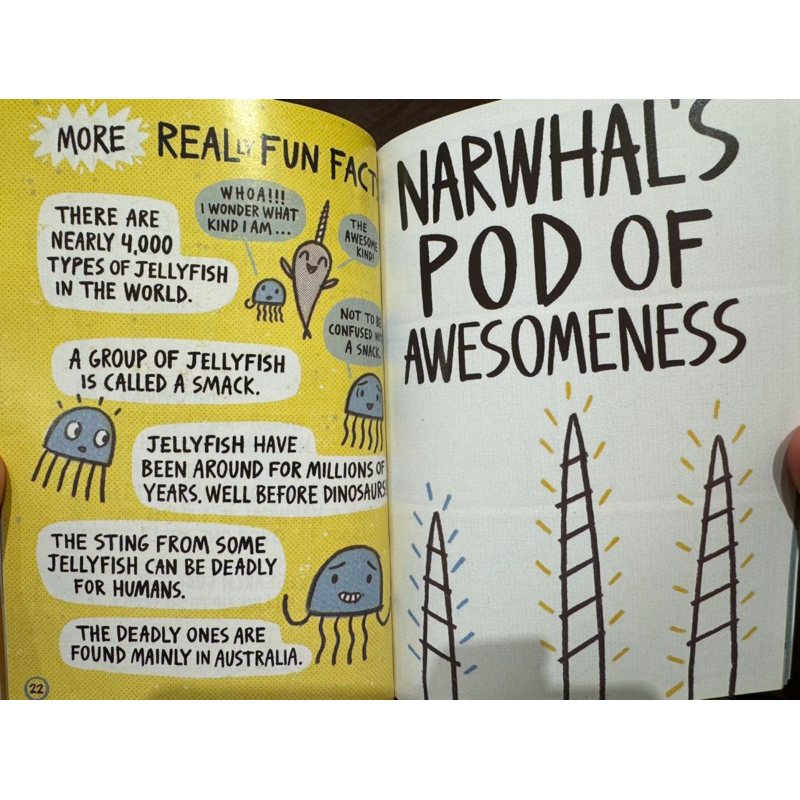 MORE REALLY FUN FACT
THERE ARE
NEARLY 4,000
TYPES OF JELLYFISH
IN THE WORLD.
WHOA!!!
I WONDER WHAT
KIND I AM...
THE
AWESOME
KIND!
NOT TO BE
CONFUSED WITH
A SNACK.
A GROUP OF JELLYFISH
IS CALLED A SMACK.
JELLYFISH HAVE
BEEN AROUND FOR MILLIONS OF
YEARS. WELL BEFORE DINOSAURS
THE STING FROM SOME
JELLYFISH CAN BE DEADLY
FOR HUMANS.
THE DEADLY ONES ARE
FOUND MAINLY IN AUSTRALIA.
22
NARWHAL'S
POD OF
AWESOMENESS